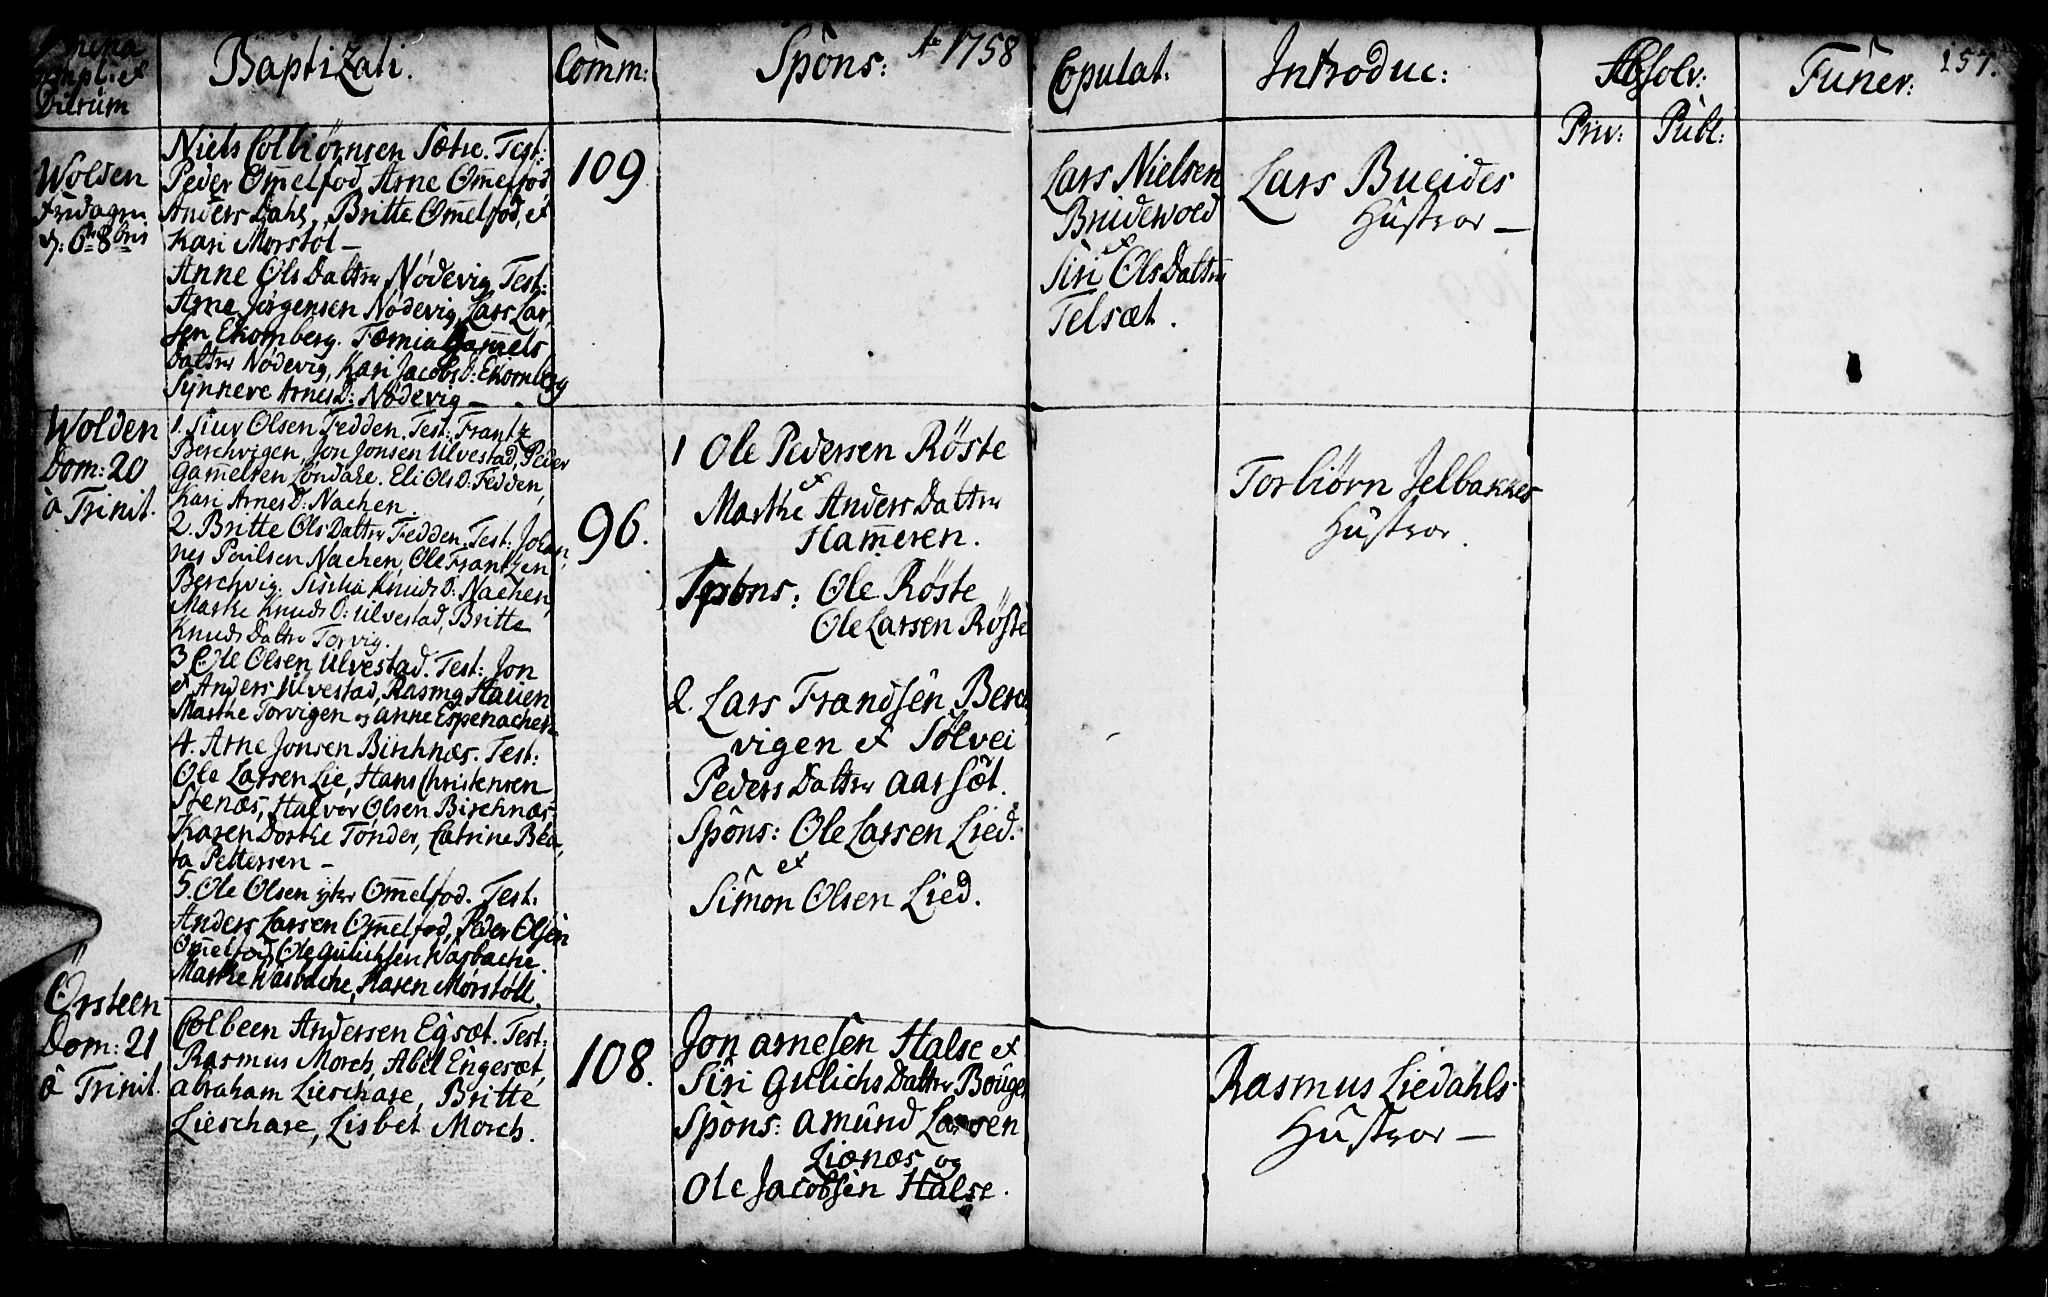 Baptizati.
Comm:
Spons: Ao 1758
Copulat:
Introduc:
Absolv:
Priv: Publ:
Funer:
157.
Wolden
Fredagen
d: 6te 8bris
Niels Colbiørnsen Sætre. Test:
Peder Om̅elfod, Arne Om̅elfod
Anders Dahl, Britte Om̅elfod, et
Kari Morstøl –
Anne Ols Datter Nødevig, Test:
Arne Jørgensen Nødevig, Lars Lar,
sen Ekornberg. Tæmia Gam̅els
Datter Nødevig, Kari Jacobs D: Ekornberg
Synneve Arnes D: Nødevig –
109
Lars Nielsen
Brudewold
et
Siri Ols Datter
Telsæt.
Lars Bueides
Hustror –
Wolden
Dom: 20
à Trinit.
1. Siur Olsen Fedden. Test: Frantz
Berchvigen, Jon Jonsen Ulvestad, Peder
Gam̅elsen Løndahl. Eli Ols D: Fedden,
Kari Arnes D: Nachen.
2. Britte Ols Datter Fedden. Test: Johan,
nes Poulsen Nachen, Ole Frantzen
Berchvig. Sisilia Knuds D: Nachen,
Marthe Knuds D: Ulvestad, Britte
Knuds Datter Torvig.
3 Ole Olsen Ulvestad. Test: Jon
et Anders Ulvestad, Rasmg Hauen
Marthe Torvigen og Anne Espenachen
4. Arne Jonsen Birchnæs. Test:
Ole Larsen Lie, Hans Christensen
Stenæs, Halvor Olsen Birchnæs
Karen Dorthe Tønder, Catrine Bea,
ta Pettersen –
5. Ole Olsen ytre Om̅elfod. Test:
Anders Larsen Om̅elfod, Peder Olsen
Om̅elfod, Ole Gulichsen Wasbache.
Marthe Wasbache, Karen Mørstøll.
96.
1 Ole Pedersen Røste
et
Marthe Anders Datter
Ham̅eren.
Spons: Ole Røste
Ole Larsen Røste
2. Lars Frandsen Berch
vigen et Sølvei
Peders Datter Aarsæt.
Spons: Ole Larsen Lied.
et
Simon Olsen Lied.
Torbiørn Jelbakkes
Hustror.
Ørsteen
Dom: 21
à Trinit.
Colbeen Andersen Egsæt. Test:
Rasmus Morch, Abel Engesæt,
Abraham Lierchare, Britte
Lierchare, Lisbet Morch.
108.
Jon Arnesen Halse et
Siri Gulichs Datter Bouge
Spons: Amund Larsen
Lienæs og
Ole Jacobsen Halse.
Rasmus Liedahls
Hustror –